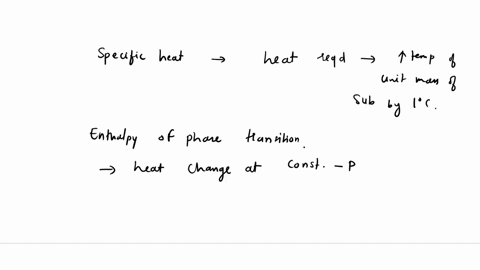 Specific heat → heat reqd → ↑ temp of
unit mass of
Sub by 1°C.
Enthalpy of phase transition.
→ heat change at const. - P